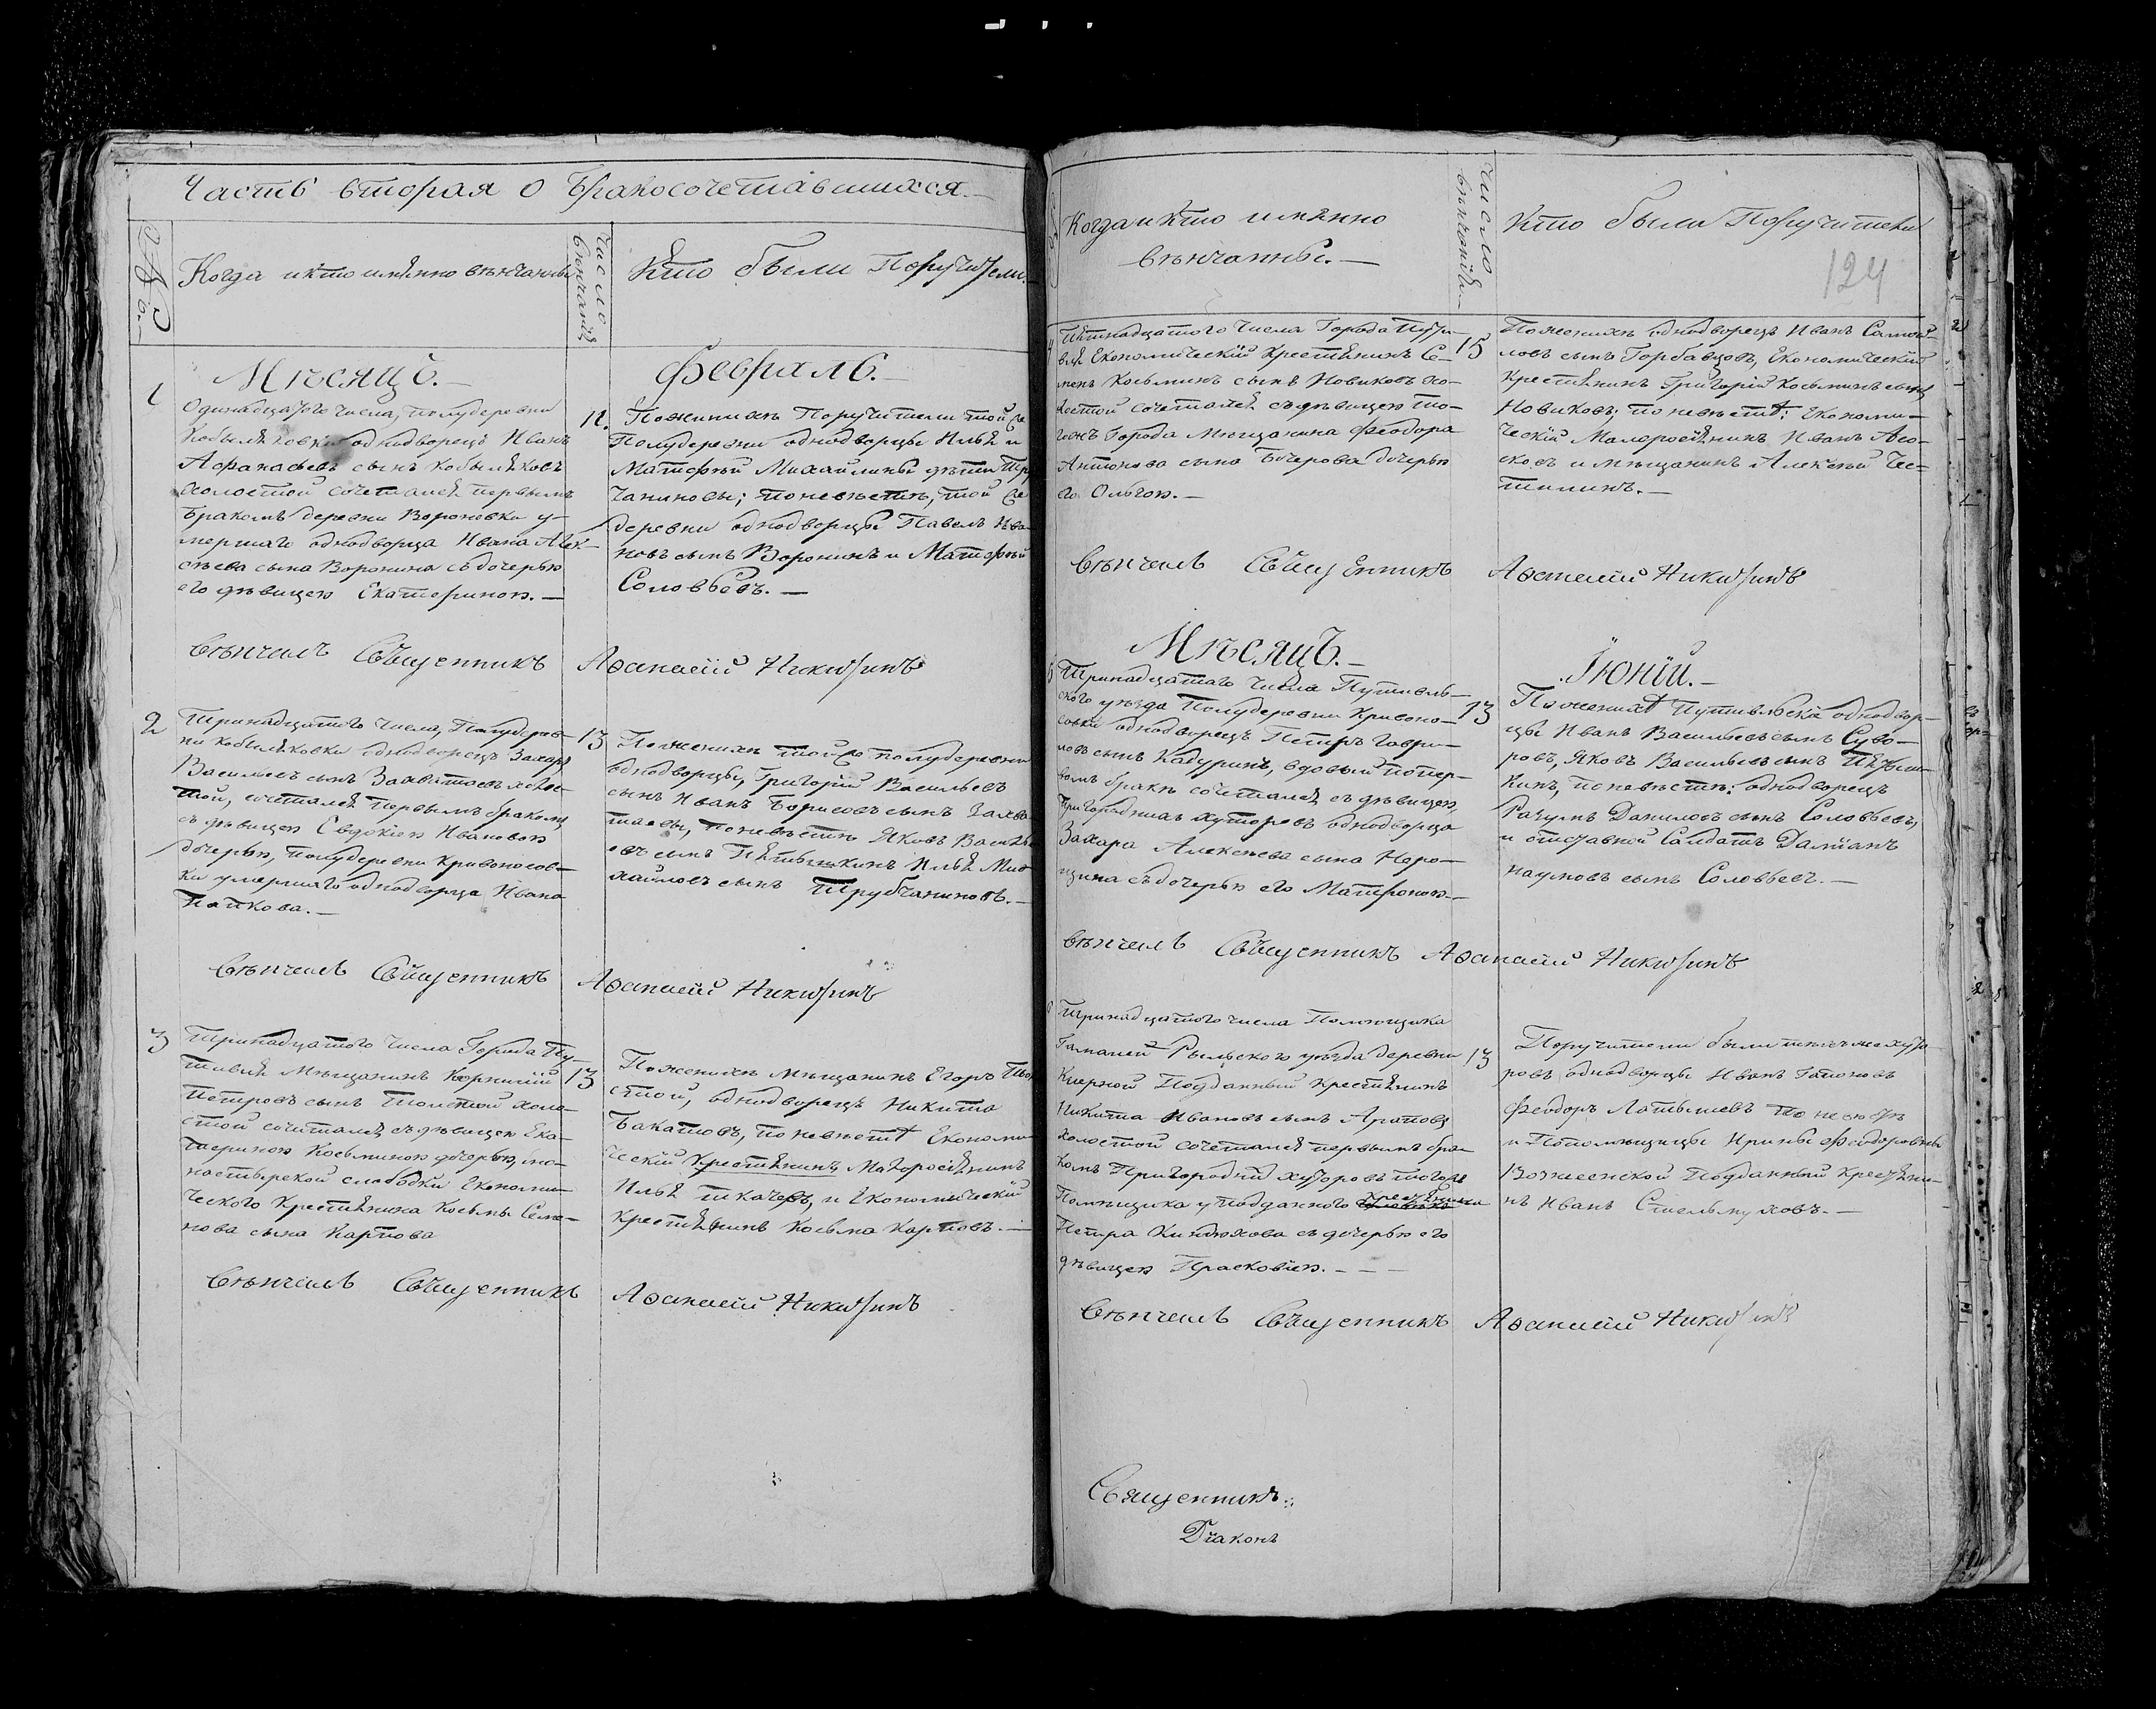 Часть вторая о бракосочетавшихся.
№
Когда и кто имянно венчаны
число венчания
Кто были поручители.
Месяцъ.
Февраль.
1
Одинадцатого числа, полудеревни
однодворецъ Иванъ
Афанасьевъ сынъ Кобыляковъ
холостой сочетался первымъ
бракомъ деревни Вороновки у-
мершаго однодворца Ивана Алек-
сѣева сына Воронина съ дочерью
его дѣвицею Екатериною.
11.
По женихѣ поручители той же
полудеревни однодворцы Илья и
Матвѣй Михайлины дѣти Тру
чаниновы; по невѣстѣ, той же
деревни однодворцы Павелъ Ива-
новъ сынъ Воронинъ и Матвѣй
Соловьевъ.
Вѣнчалъ Священникъ Аѳанасій Никитинъ
2
Тринадцатого числа, полудерев-
ни Кобыляковки однодворецъ Захаръ
Васильевъ сынъ холос-
той, сочетался первымъ бракомъ
съ дѣвицею Евдокіею Ивановою
дочерью, полудеревни Кривоносов-
ки умершаго однодворца Ивана
Папкова.
13
По женихѣ той же полудеревни
однодворцы, Григорій Васильевъ
сынъ Иванъ Борисовъ сынъ
по невѣстѣ Яковъ Василь
евъ сынъ Илья Ми
хайловъ сынъ Трубчаниновъ.
Вѣнчалъ Священникъ Аѳанасій Никитинъ
3
Тринадцатого числа Города Пу-
тивля мѣщанинъ Корнилій
Петровъ сынъ Толстой холо-
стой сочетался съ дѣвицею Ека-
териною Косьминою дочерью, мо-
настырской слободки Економи-
ческого крестьянина Косьмы Семе-
нова сына Карпова
13
По женихѣ мѣщанинъ Егоръ Тол
стой, однодворецъ Никита
Бакатовъ, по невѣстѣ Економи
ческій крестьянинъ Малоросіянинъ
Илья Ткачевъ, и Економическій
крестьянинъ Косьма Карповъ.
Вѣнчалъ Священникъ Аѳанасій Никитинъ
Когда и кто имянно
венчанны.
число венчанія
Кто были Поручители
124
4
Пятнадцатого числа Города Пути-
вля Економическій крестьянинъ Се-
менъ Косьминъ сынъ Новиковъ хо-
лостой сочетался съ дѣвицею то-
гожъ Города мѣщанина Феодора
Антонова сына Бочерова дочерью
его Ольгою.
15
По женихѣ однодворецъ Иванъ Самой-
ловъ сынъ Горбавцовъ, Економическій
крестьянинъ Григорій Косьминъ сынъ
Новиковъ; по невѣстѣ: Економи-
ческій Малоросіянинъ Иванъ
и мѣщанинъ Алексѣй Чес-
Вѣнчалъ Священникъ Аѳанасій Никитинъ
Мѣсяцъ.
Іюній.
Тринадцатаго числа Путивль-
ского уезда полудеревни Кривоно-
совки однодворецъ Петръ Гаври-
ловъ сынъ Кадуринъ, вдовый по пер-
вомъ бракѣ сочетался съ дѣвицею
Пригороднихъ хуторовъ однодворца
Захара Алексѣева сына Наро-
щина съ дочерью его Матроною.
13
По женихѣ Путивльска однодвор-
цы Иванъ Васильевъ сынъ Суво-
ровъ, Яковъ Васильевъ сынъ
по невѣстѣ: однодворецъ
Данилов сынъ Соловьевъ,
и отставной Салдатъ Даміанъ
Наумовъ сынъ Соловьевъ.
Вѣнчалъ Священникъ Аѳанасій Никитинъ
Тринадцатого числа Помѣщика
Гамалей Рыльского уезда деревни
Подданный крестьянинъ
Никита Ивановъ сынъ Араповъ
холостой сочетался первымъ бра
комъ Пригородній хуторовъ тогожъ
Помѣщика у подданного крестьянина
Петра Киндюхова съ дочерью его
дѣвицею Прасковіею.
13
Поручители были тѣхъ же хуто-
ровъ однодворцы Иванъ Гапоновъ
Феодоръ Латышевъ по невѣстѣ
и Помѣщицы Ирины Феодоровны
Подданный крестьяни-
нъ Иванъ Стельмуховъ.
Вѣнчалъ Священникъ Аѳанасій Никитинъ
Священникъ
Діаконъ